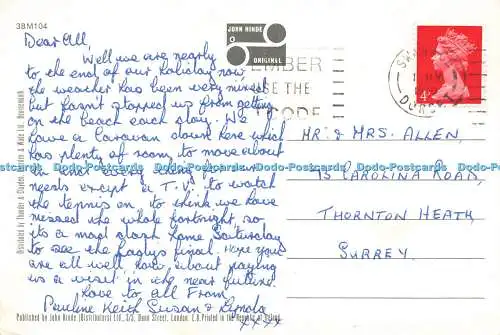 38M104
JOHN HINDE
ORIGINAL
EMBER
USE THE
CODE
4
Dear All,
Well we are nearly
to the end of our holiday now,
the weather has been very mixed
but hasn't stopped us from getting
on the beach each day. We
have a Caravan down here which
has plenty of room to move about
needs except a T.V. to watch
the tennis on, to think we have
missed the whole fortnight, so
its a mad dash home Saturday
to see the final. Hope you
are all well how about paying
us a visit in the near future.
Love to all From
Pauline Keith Susan & Lynda
xxxx
MR. & MRS. ALLEN,
75 CAROLINA ROAD,
THORNTON HEATH
SURREY.
Distributed by Thunder & Clayden, Wade Ltd., Bournemouth.
Published by John Hinde (Distributors) Ltd., 3/5, Dunn Street, London, E.8. Printed in the Republic of Ireland.
Dodo-Postcards Dodo-Postcards Dodo-Postcards Dodo-Postcards Dodo-Postcards Dodo-Postcards